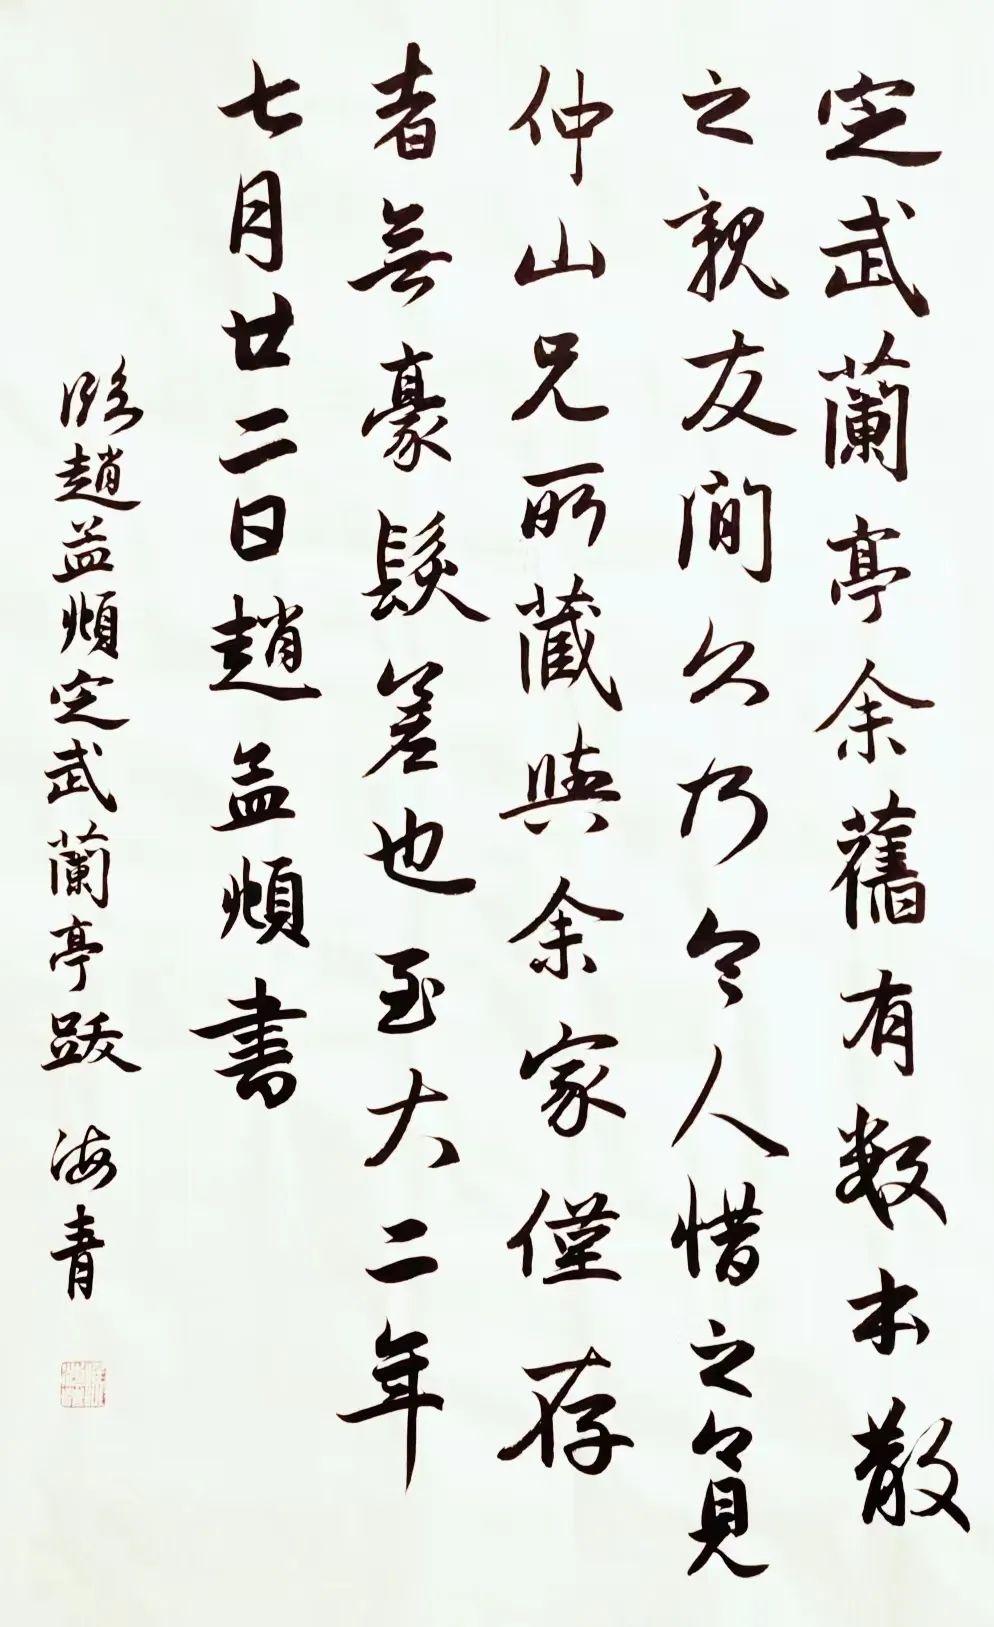 定武蘭亭余舊有数本散
之親友間久乃令人惜之今見
仲山兄所藏與余家僅存
者無豪髮差也至大二年
七月廿二日趙孟頫書
臨趙孟頫定武蘭亭跋 海青